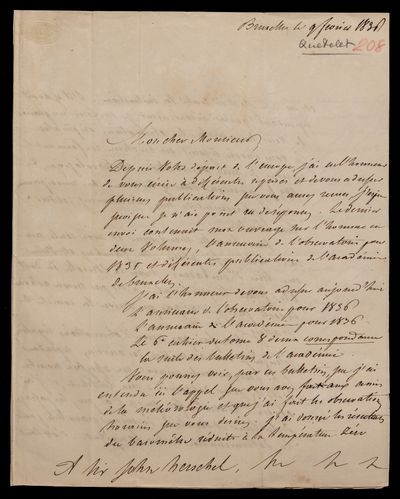 Bruxelles le 9 février 1836
Quetelet 208
Mon cher Monsieur,
Depuis votre départ de l'europe j'ai eu l'honneur
de vous écrire à différentes reprises et de vous adresser
plusieurs publications que vous aurez reçues j'espère
puisque je n'ai point eu de réponse. Le dernier
envoi contenait mon ouvrage sur l'homme en
deux volumes, l'annuaire de l'observatoire pour
1835 et différentes publications de l'académie
de bruxelles.
J'ai l'honneur de vous adresser aujourd'hui
L'annuaire de l'observatoire pour 1836
L'annuaire de l'académie pour 1836
Le 6e cahier du tome 8 de ma correspondance
la suite des bulletins de l'académie
Vous pourrez voir, par ces bulletins, que j'ai
entendu ici l'appel que vous avez fait aux amis
de la météorologie et que j'ai fait les observations
horaires que vous desirez. j'ai donné les résultats
du baromètre réduits à la température zéro
A Sir John Herschel,